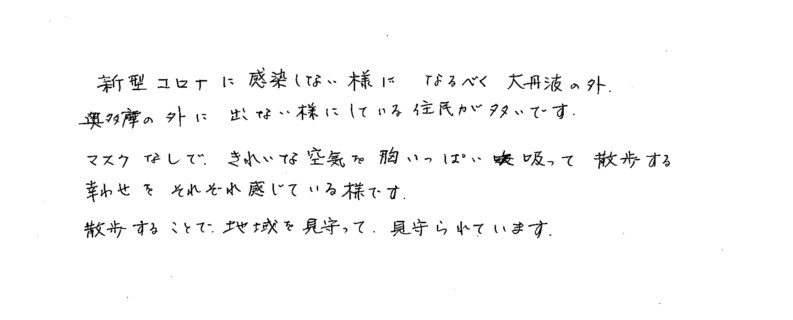 新型コロナに感染しない様に なるべく 大丹波の外.
奥多摩の外に 出ない様にしている住民が多いです.
マスクなしで. きれいな空気を胸いっぱい吸って 散歩する
幸わせを それぞれ感じている様です.
散歩することで. 地域を見守って. 見守られています.